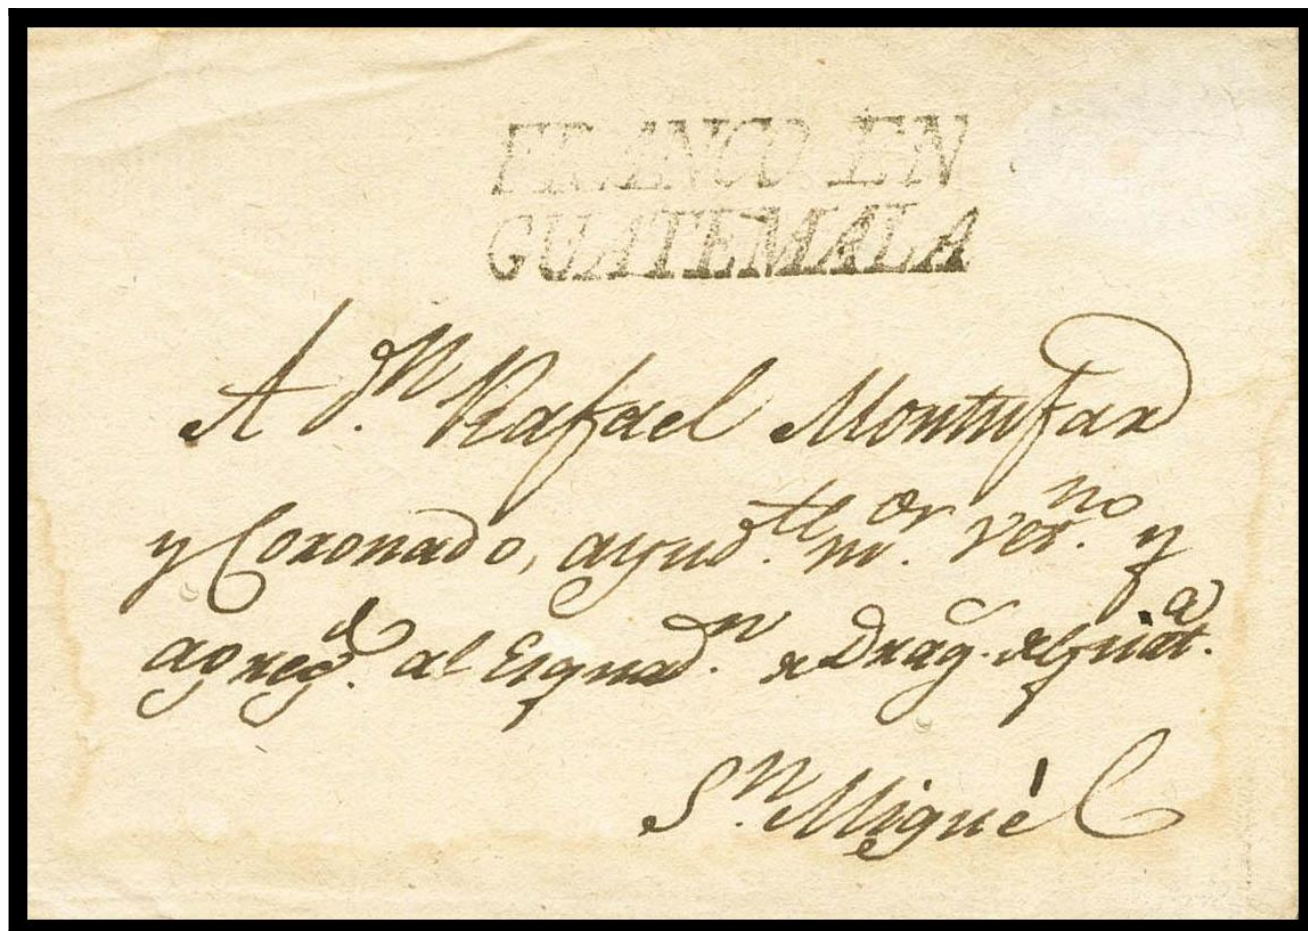 FRANCO EN
GUATEMALA
A Dn. Rafael Montufar
y Coronado, ayud.te m.or Vet.no y
agreg.do al Esquad.n de Drag.s de Guat.a
Sn. Miguèl